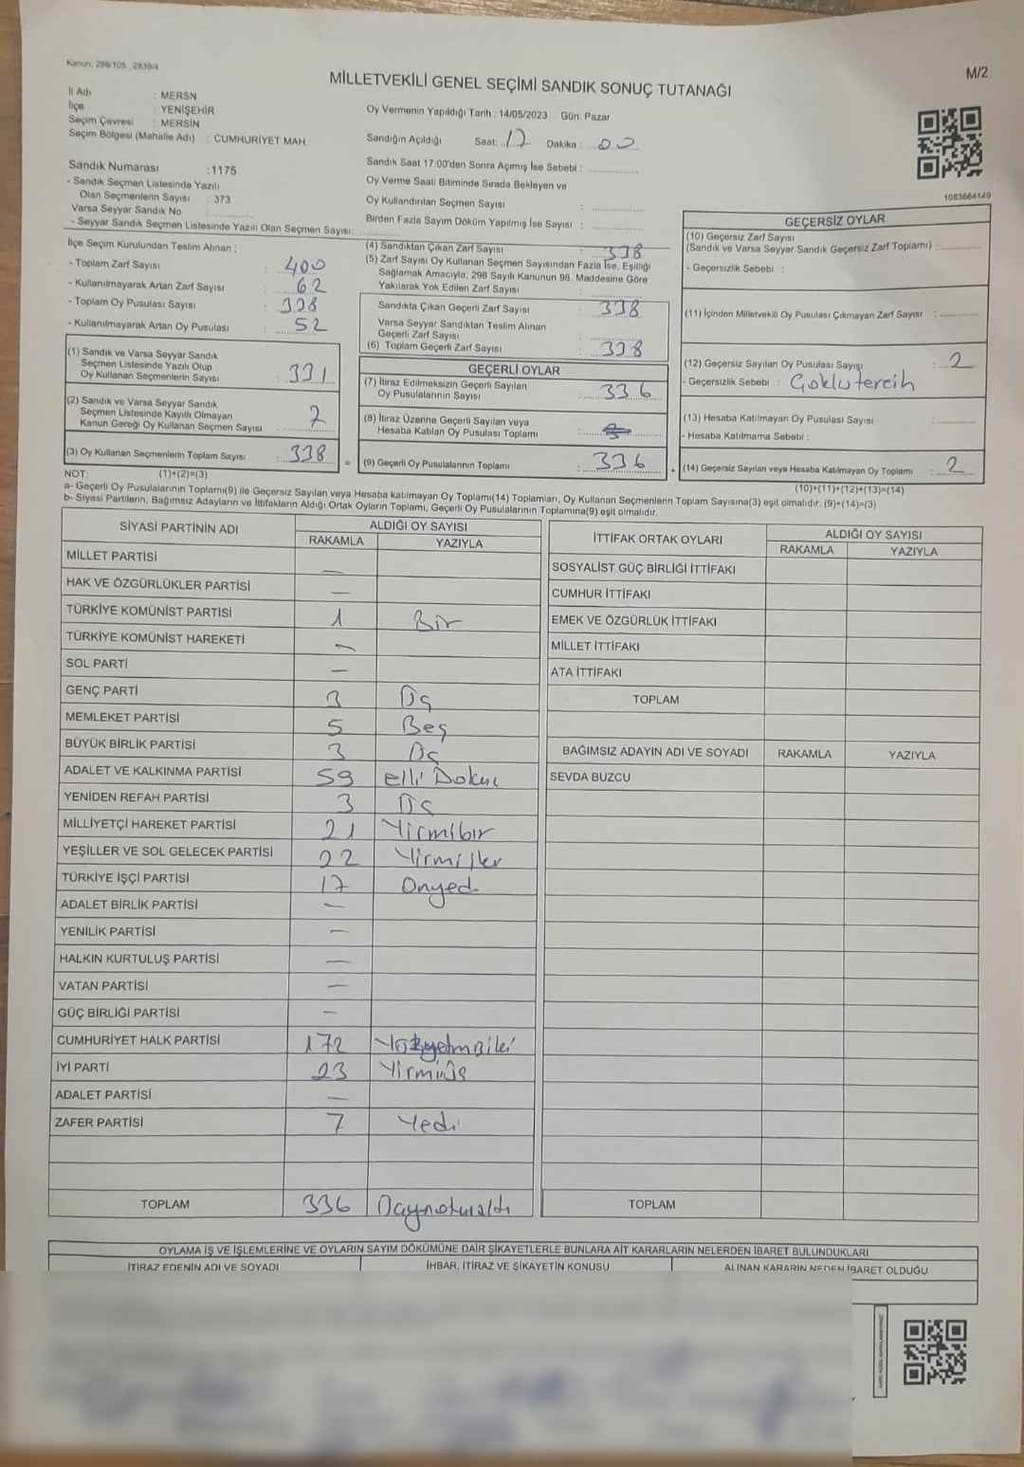 Kanun: 298/105, 2839/4
M/2
MİLLETVEKİLİ GENEL SEÇİMİ SANDIK SONUÇ TUTANAĞI
İl Adı : MERSN
İlçe : YENİŞEHİR
Seçim Çevresi : MERSİN
Seçim Bölgesi (Mahalle Adı) : CUMHURİYET MAH.
Sandık Numarası :1175
- Sandık Seçmen Listesinde Yazılı
Olan Seçmenlerin Sayısı : 373
Varsa Seyyar Sandık No
- Seyyar Sandık Seçmen Listesinde Yazılı Olan Seçmen Sayısı:
Oy Vermenin Yapıldığı Tarih : 14/05/2023 Gün. Pazar
Sandığın Açıldığı Saat: 17 Dakika : 00
Sandık Saat 17:00'den Sonra Açımış İse Sebebi :
Oy Verme Saati Bitiminde Sırada Bekleyen ve
Oy Kullandırılan Seçmen Sayısı :
Birden Fazla Sayım Döküm Yapılmış İse Sayısı :
1083664149
İlçe Seçim Kurulundan Teslim Alınan ;
- Toplam Zarf Sayısı : 400
- Kullanılmayarak Artan Zarf Sayısı : 62
- Toplam Oy Pusulası Sayısı : 398
- Kullanılmayarak Artan Oy Pusulası : 52
(1) Sandık ve Varsa Seyyar Sandık
Seçmen Listesinde Yazılı Olup
Oy Kullanan Seçmenlerin Sayısı : 331
(2) Sandık ve Varsa Seyyar Sandık
Seçmen Listesinde Kayıtlı Olmayan
Kanun Gereği Oy Kullanan Seçmen Sayısı : 7
(3) Oy Kullanan Seçmenlerin Toplam Sayısı : 338
(4) Sandıktan Çıkan Zarf Sayısı : 338
(5) Zarf Sayısı Oy Kullanan Seçmen Sayısından Fazla İse, Eşitliği
Sağlamak Amacıyla; 298 Sayılı Kanunun 98. Maddesine Göre
Yakılarak Yok Edilen Zarf Sayısı :
Sandıkta Çıkan Geçerli Zarf Sayısı : 338
Varsa Seyyar Sandıktan Teslim Alınan
Geçerli Zarf Sayısı :
(6) Toplam Geçerli Zarf Sayısı : 338
GEÇERLİ OYLAR
(7) İtiraz Edilmeksizin Geçerli Sayılan
Oy Pusulalarının Sayısı : 336
(8) İtiraz Üzerine Geçerli Sayılan veya
Hesaba Katılan Oy Pusulası Toplamı :
= (9) Geçerli Oy Pusulalarının Toplamı : 336
GEÇERSİZ OYLAR
(10) Geçersiz Zarf Sayısı
(Sandık ve Varsa Seyyar Sandık Geçersiz Zarf Toplamı) :
- Geçersizlik Sebebi :
(11) İçinden Milletvekili Oy Pusulası Çıkmayan Zarf Sayısı :
(12) Geçersiz Sayılan Oy Pusulası Sayısı : 2
- Geçersizlik Sebebi : Çoklu tercih
(13) Hesaba Katılmayan Oy Pusulası Sayısı :
- Hesaba Katılmama Sebebi :
+ (14) Geçersiz Sayılan veya Hesaba Katılmayan Oy Toplamı : 2
NOT: (1)+(2)=(3)
(10)+(11)+(12)+(13)=(14)
a- Geçerli Oy Pusulalarının Toplamı(9) ile Geçersiz Sayılan veya Hesaba katılmayan Oy Toplamı(14) Toplamları, Oy Kullanan Seçmenlerin Toplam Sayısına(3) eşit olmalıdır. (9)+(14)=(3)
b- Siyasi Partilerin, Bağımsız Adayların ve İttifakların Aldığı Ortak Oyların Toplamı, Geçerli Oy Pusulalarının Toplamına(9) eşit olmalıdır.
SİYASİ PARTİNİN ADI ALDIĞI OY SAYISI
RAKAMLA YAZIYLA
MİLLET PARTİSİ —
HAK VE ÖZGÜRLÜKLER PARTİSİ —
TÜRKİYE KOMÜNİST PARTİSİ 1 Bir
TÜRKİYE KOMÜNİST HAREKETİ —
SOL PARTİ —
GENÇ PARTİ 3 Üç
MEMLEKET PARTİSİ 5 Beş
BÜYÜK BİRLİK PARTİSİ 3 Üç
ADALET VE KALKINMA PARTİSİ 59 elli Dokuz
YENİDEN REFAH PARTİSİ 3 Üç
MİLLİYETÇİ HAREKET PARTİSİ 21 Yirmibir
YEŞİLLER VE SOL GELECEK PARTİSİ 22 Yirmi iki
TÜRKİYE İŞÇİ PARTİSİ 17 Onyedi
ADALET BİRLİK PARTİSİ —
YENİLİK PARTİSİ —
HALKIN KURTULUŞ PARTİSİ —
VATAN PARTİSİ —
GÜÇ BİRLİĞİ PARTİSİ —
CUMHURİYET HALK PARTİSİ 172 Yüzyetmişiki
İYİ PARTİ 23 Yirmiüç
ADALET PARTİSİ —
ZAFER PARTİSİ 7 Yedi
TOPLAM 336 Üçyüzotuzaltı
İTTİFAK ORTAK OYLARI ALDIĞI OY SAYISI
RAKAMLA YAZIYLA
SOSYALİST GÜÇ BİRLİĞİ İTTİFAKI
CUMHUR İTTİFAKI
EMEK VE ÖZGÜRLÜK İTTİFAKI
MİLLET İTTİFAKI
ATA İTTİFAKI
TOPLAM
BAĞIMSIZ ADAYIN ADI VE SOYADI RAKAMLA YAZIYLA
SEVDA BUZCU
TOPLAM
OYLAMA İŞ VE İŞLEMLERİNE VE OYLARIN SAYIM DÖKÜMÜNE DAİR ŞİKAYETLERLE BUNLARA AİT KARARLARIN NELERDEN İBARET BULUNDUKLARI
İTİRAZ EDENİN ADI VE SOYADI İHBAR, İTİRAZ VE ŞİKAYETİN KONUSU ALINAN KARARIN NEDEN İBARET OLDUĞU